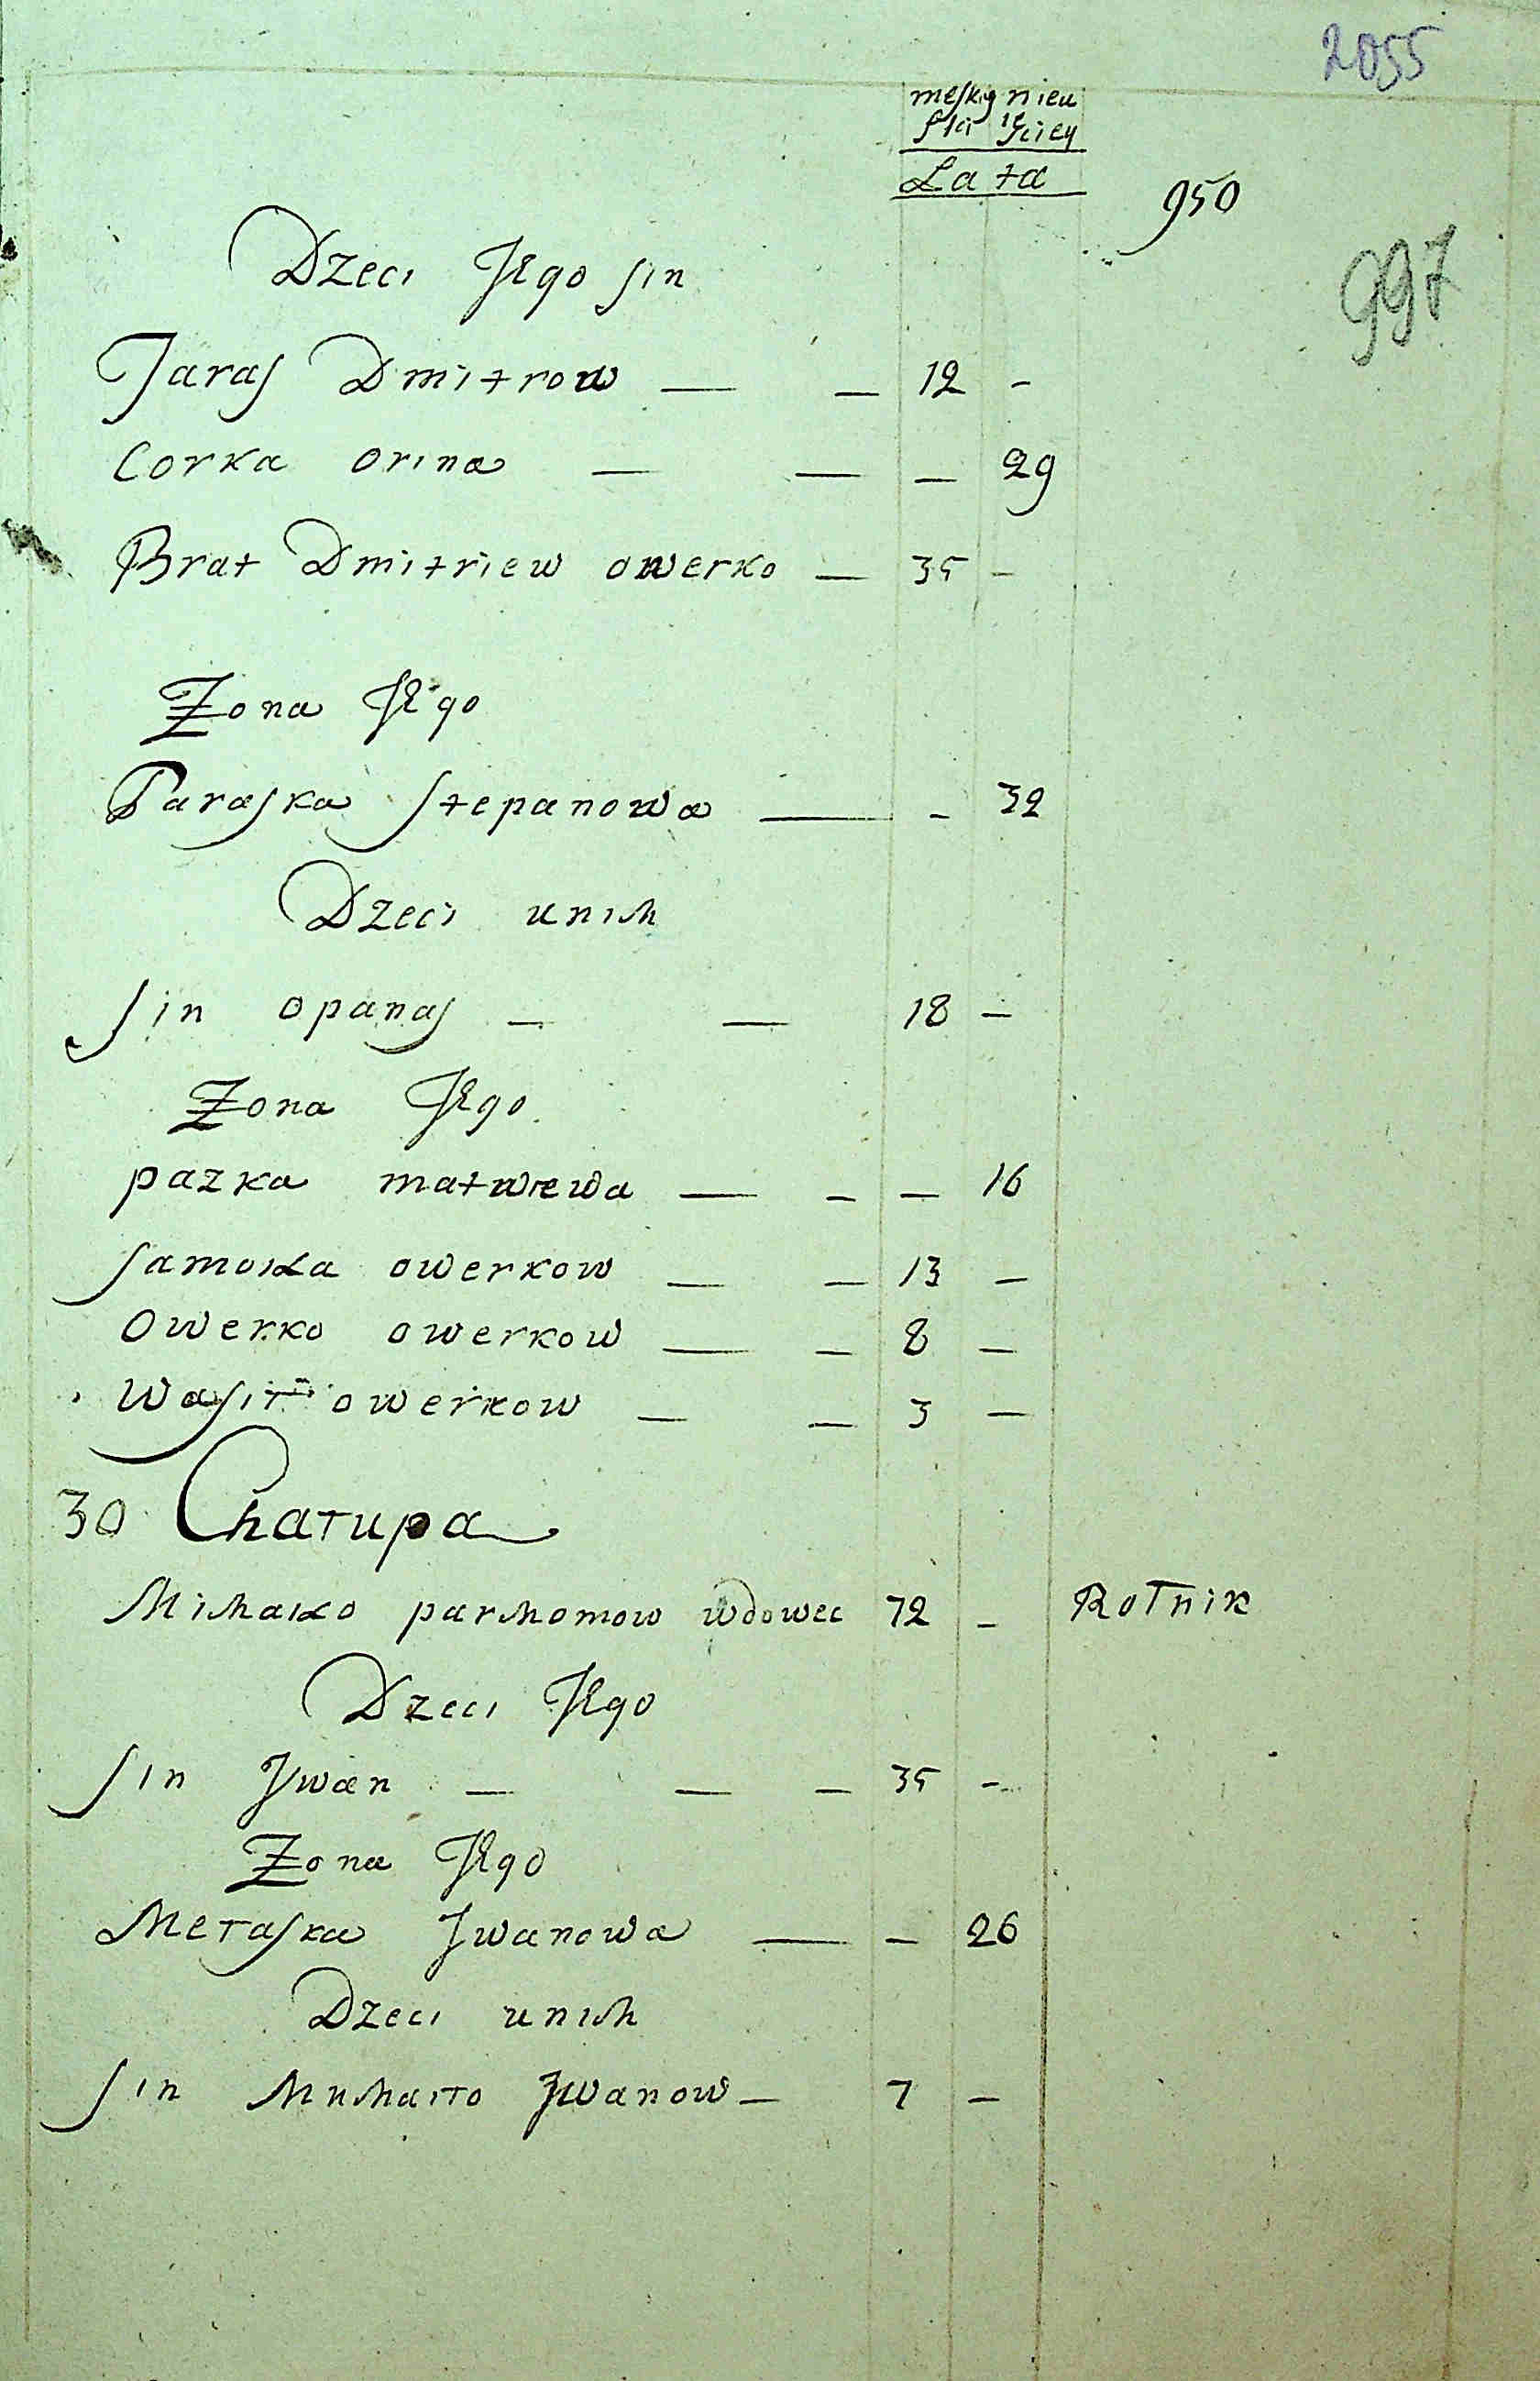 2055
meskiy niew
sta sciey
Lata
950
997
Dzeci Jego sin
Taras Dmitrow — — 12 -
Corka orina — — — 29
Brat Dmitriew owerko — 35 -
Zona Jego
Paraska Stepanowa — - 32
Dzeci unich
Sin opanas — — 18 —
Zona Jego
pazka matwiewa — - — 16
Samoiła owerkow — — 13 —
Owerko owerkow — — 8 —
Wasil owerkow — — 3 —
30 Chałupa
Michaiło parchomow wdowec 72 - Rolnik
Dzeci Jego
Sin Jwan — — — 35 -
Zona Jego
Melaska Jwanowa — — 26
Dzeci unich
Sin Michaiło Jwanow — 7 —